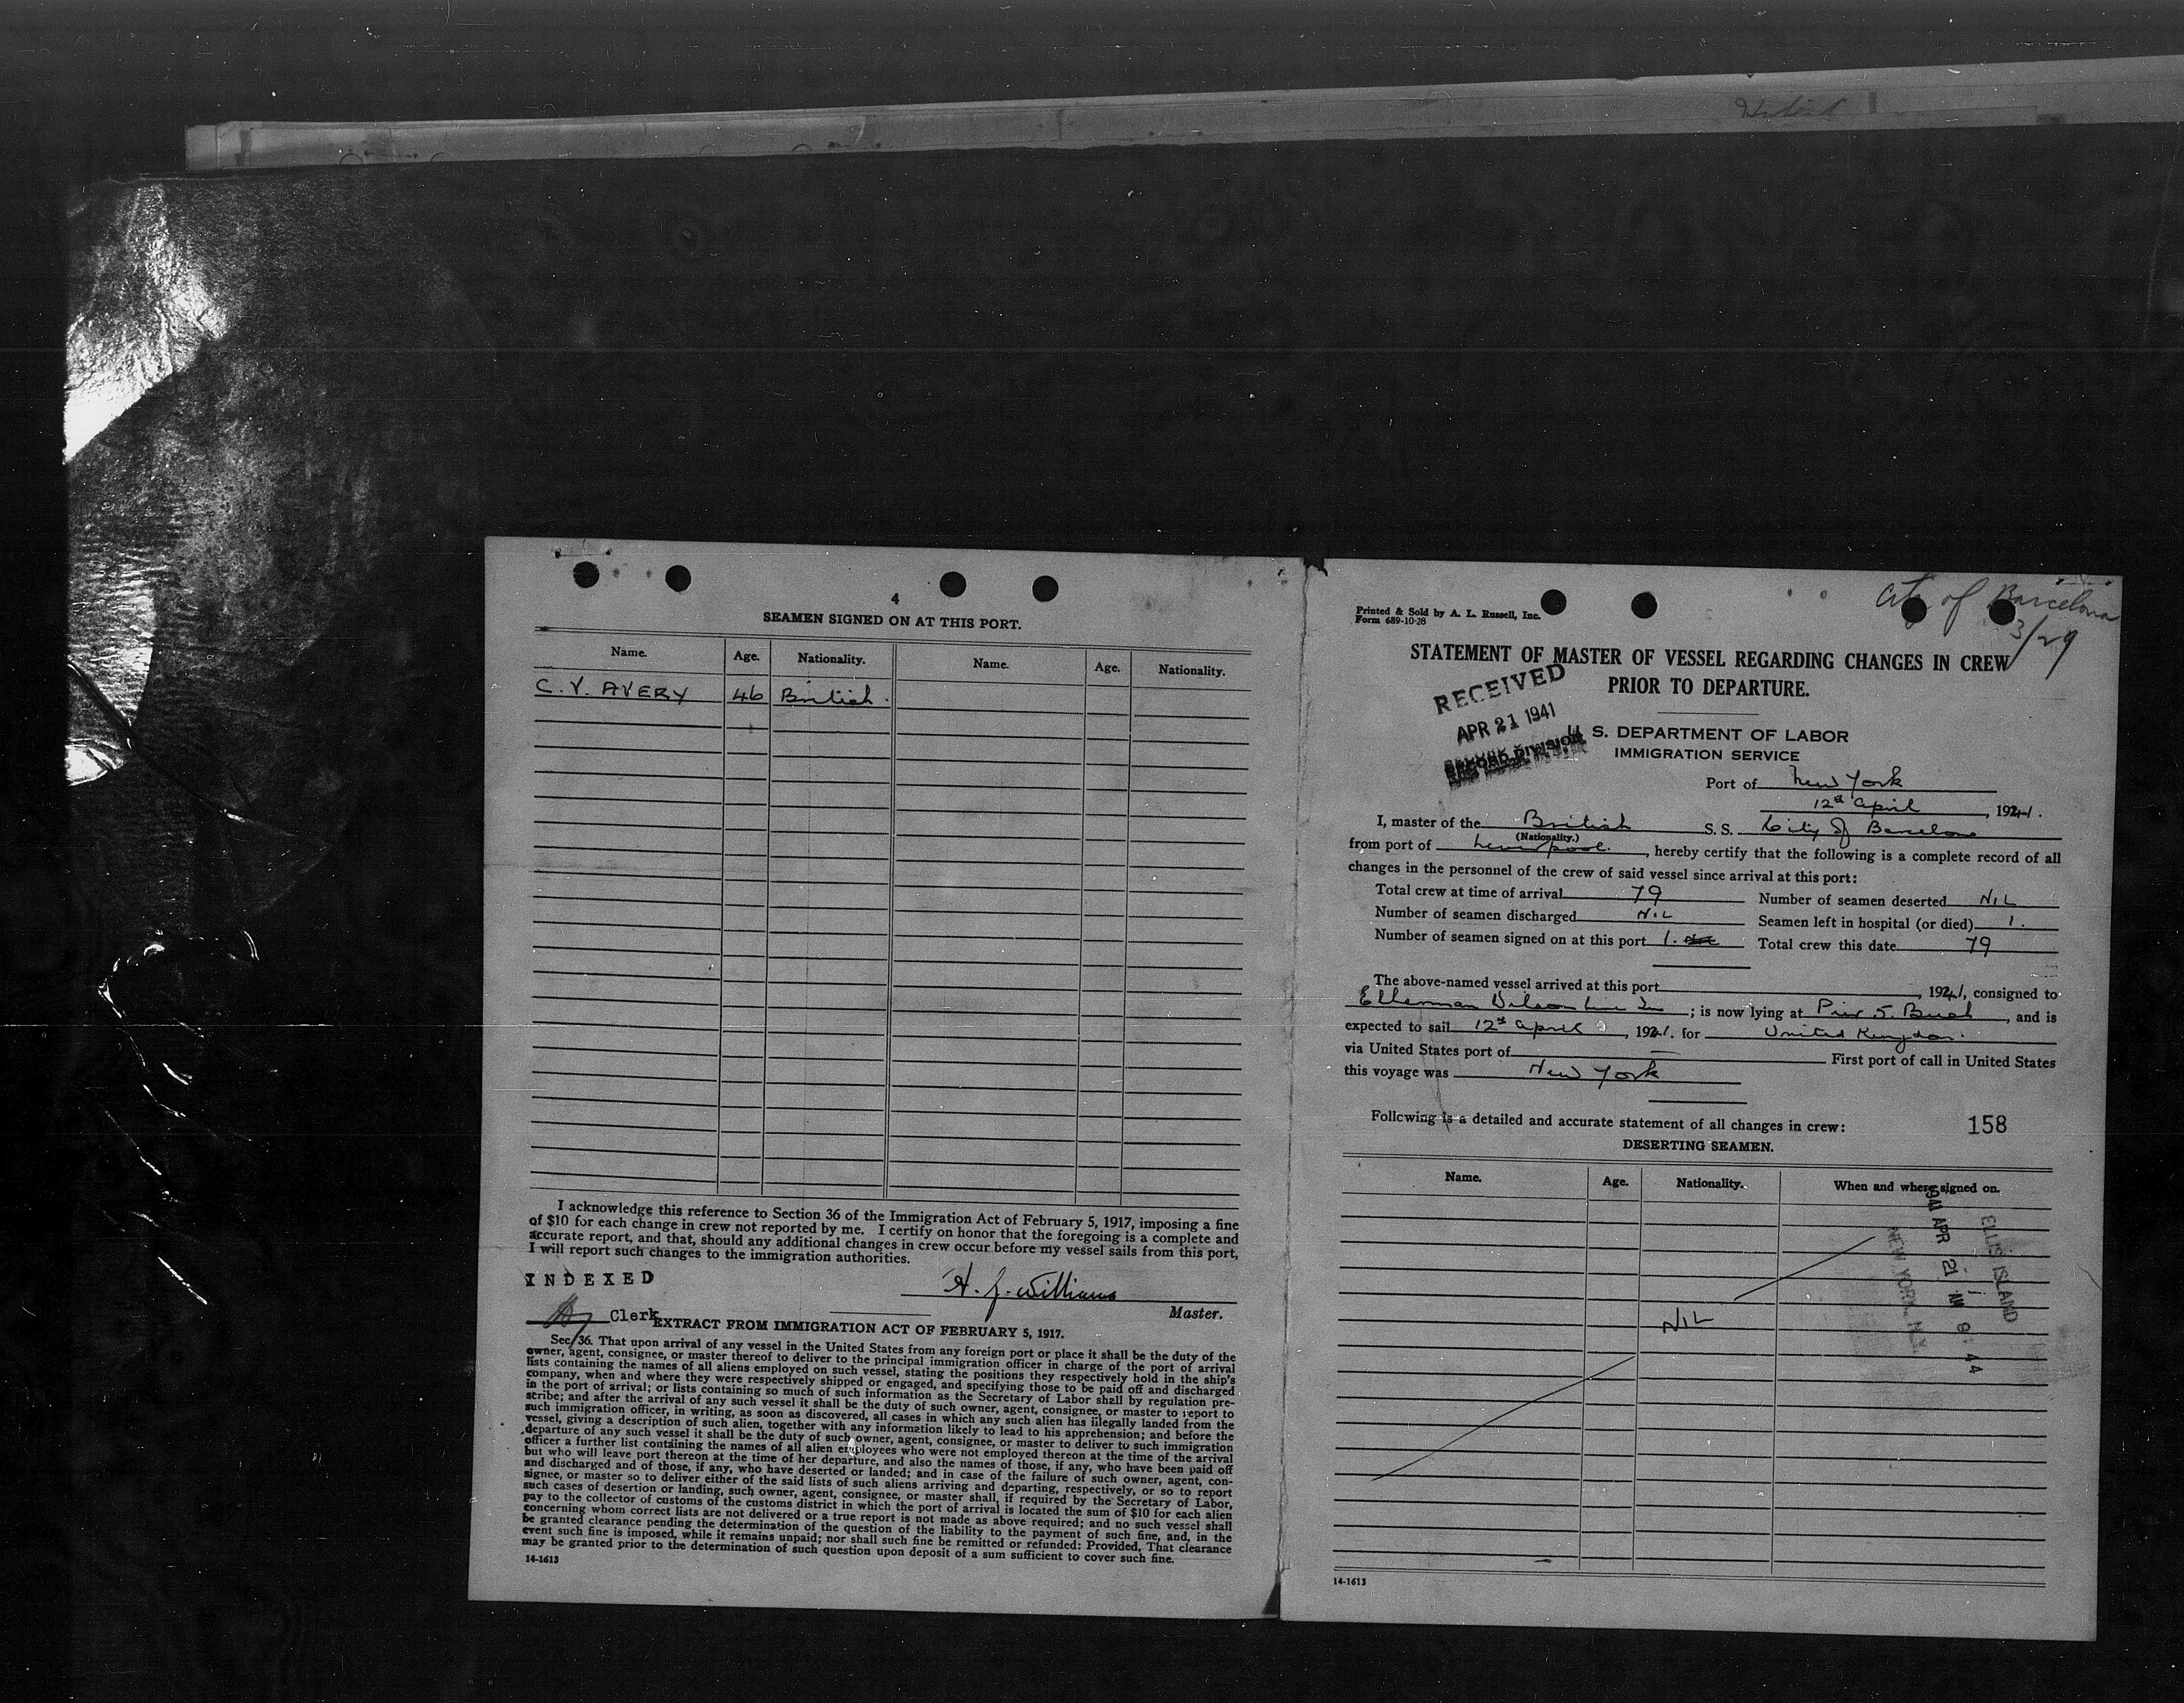 4
SEAMEN SIGNED ON AT THIS PORT.
Name. Age. Nationality. Name. Age. Nationality.
C. V. AVERY 46 British.
I acknowledge this reference to Section 36 of the Immigration Act of February 5, 1917, imposing a fine
of $10 for each change in crew not reported by me. I certify on honor that the foregoing is a complete and
accurate report, and that, should any additional changes in crew occur before my vessel sails from this port,
I will report such changes to the immigration authorities.
INDEXED
H. J. Williams
Clerk
Master.
EXTRACT FROM IMMIGRATION ACT OF FEBRUARY 5, 1917.
Sec. 36. That upon arrival of any vessel in the United States from any foreign port or place it shall be the duty of the
owner, agent, consignee, or master thereof to deliver to the principal immigration officer in charge of the port of arrival
lists containing the names of all aliens employed on such vessel, stating the positions they respectively hold in the ship's
company, when and where they were respectively shipped or engaged, and specifying those to be paid off and discharged
in the port of arrival; or lists containing so much of such information as the Secretary of Labor shall by regulation pre-
scribe; and after the arrival of any such vessel it shall be the duty of such owner, agent, consignee, or master to report to
such immigration officer, in writing, as soon as discovered, all cases in which any such alien has illegally landed from the
vessel, giving a description of such alien, together with any information likely to lead to his apprehension; and before the
departure of any such vessel it shall be the duty of such owner, agent, consignee, or master to deliver to such immigration
officer a further list containing the names of all alien employees who were not employed thereon at the time of the arrival
but who will leave port thereon at the time of her departure, and also the names of those, if any, who have been paid off
and discharged and of those, if any, who have deserted or landed; and in case of the failure of such owner, agent, con-
signee, or master so to deliver either of the said lists of such aliens arriving and departing, respectively, or so to report
such cases of desertion or landing, such owner, agent, consignee, or master shall, if required by the Secretary of Labor,
pay to the collector of customs of the customs district in which the port of arrival is located the sum of $10 for each alien
concerning whom correct lists are not delivered or a true report is not made as above required; and no such vessel shall
be granted clearance pending the determination of the question of the liability to the payment of such fine, and, in the
event such fine is imposed, while it remains unpaid; nor shall such fine be remitted or refunded: Provided, That clearance
may be granted prior to the determination of such question upon deposit of a sum sufficient to cover such fine.
14-1613
City of Barcelona
3/29
Printed & Sold by A. L. Russell, Inc.
Form 689-10-28
STATEMENT OF MASTER OF VESSEL REGARDING CHANGES IN CREW
PRIOR TO DEPARTURE.
RECEIVED
APR 21 1941
RECORD DIVISION
U. S. DEPARTMENT OF LABOR
IMMIGRATION SERVICE
Port of New York
12th April, 1941.
I, master of the British S. S. City of Barcelona
(Nationality.)
from port of Liverpool., hereby certify that the following is a complete record of all
changes in the personnel of the crew of said vessel since arrival at this port:
Total crew at time of arrival 79 Number of seamen deserted NIL
Number of seamen discharged NIL Seamen left in hospital (or died) 1.
Number of seamen signed on at this port 1. Total crew this date 79
The above-named vessel arrived at this port , 1941, consigned to
Ellerman Wilson Line ; is now lying at Pier 5. Bush, and is
expected to sail 12th April, 1941. for United Kingdom.
via United States port of — First port of call in United States
this voyage was New York
Following is a detailed and accurate statement of all changes in crew: 158
DESERTING SEAMEN.
Name. Age. Nationality. When and where signed on.
NIL
1941 APR 21 AM 9 44
ELLIS ISLAND
NEW YORK, N.Y.
14-1613